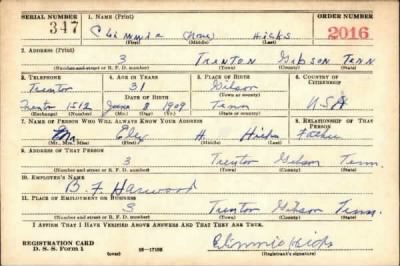 SERIAL NUMBER 1. NAME (Print) ORDER NUMBER
347 Climmie (None) Hicks 2016
(First) (Middle) (Last)
2. ADDRESS (Print)
3 TRENTON GIBSON TENN
(Number and street or R. F. D. number) (Town) (County) (State)
3. TELEPHONE 4. AGE IN YEARS 5. PLACE OF BIRTH 6. COUNTRY OF CITIZENSHIP
Trenton 31 Gibson
DATE OF BIRTH (Town or county)
Trenton 1512 June 8 1909 Tenn USA
(Exchange) (Number) (Mo.) (Day) (Yr.) (State or country)
7. NAME OF PERSON WHO WILL ALWAYS KNOW YOUR ADDRESS 8. RELATIONSHIP OF THAT PERSON
Mr. H. Hicks Father
(Mr., Mrs., Miss) (First) (Middle) (Last)
9. ADDRESS OF THAT PERSON
3 Trenton Gibson Tenn.
(Number and street or R. F. D. number) (Town) (County) (State)
10. EMPLOYER'S NAME
B. F. Harwood
11. PLACE OF EMPLOYMENT OR BUSINESS
3 Trenton Gibson Tenn.
(Number and street or R. F. D. number) (Town) (County) (State)
I AFFIRM THAT I HAVE VERIFIED ABOVE ANSWERS AND THAT THEY ARE TRUE.
REGISTRATION CARD
D. S. S. Form 1 (over) Climmie Hicks
(Registrant's signature)